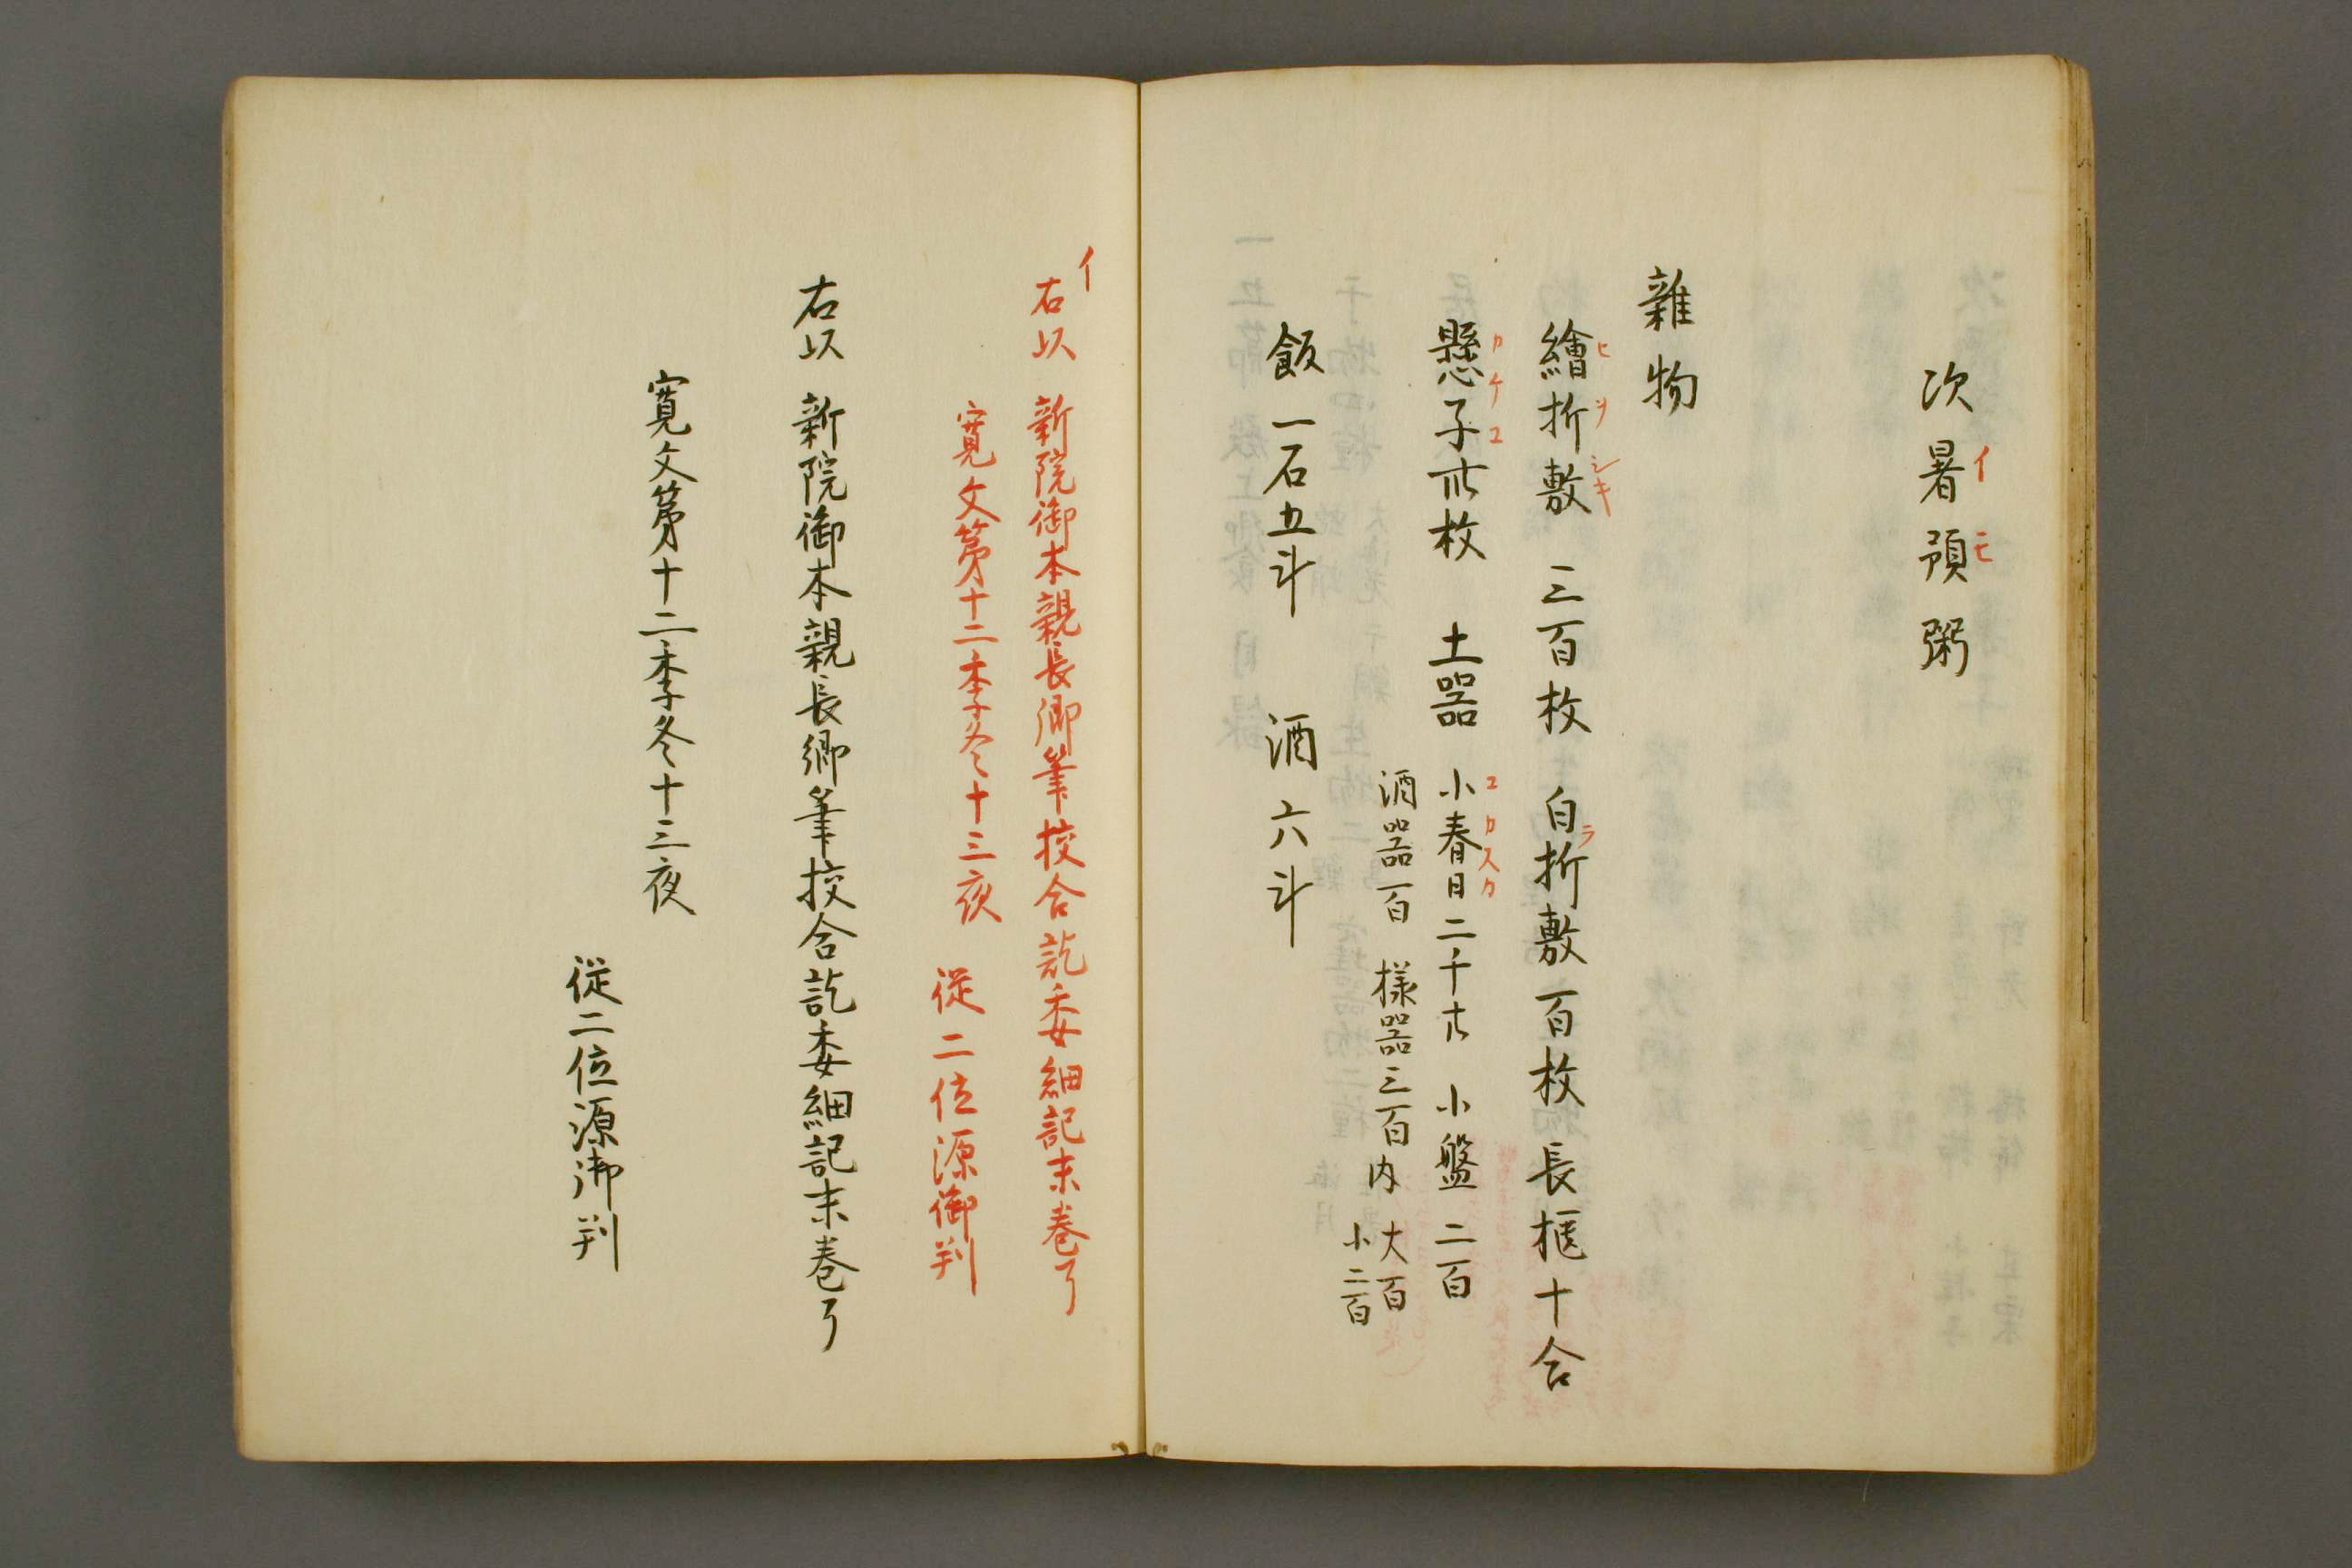 次暑預粥
イモ
雜物
繪折敷 三百枚 白折敷百枚 長櫃十合
ヒヲシキ
ラ
懸子廿枚 土器 小春日二千廿 小盤 二百
カケコ
コカスカ
酒器百 様器三百内 大百
小二百
飯一石五斗 酒六斗
イ
右以 新院御本親長卿筆挍合訖委細記末巻了
寛文第十二季冬十三夜
従二位源御判
右以 新院御本親長卿筆挍合訖委細記末巻了
寛文第十二季冬十三夜
従二位源御判